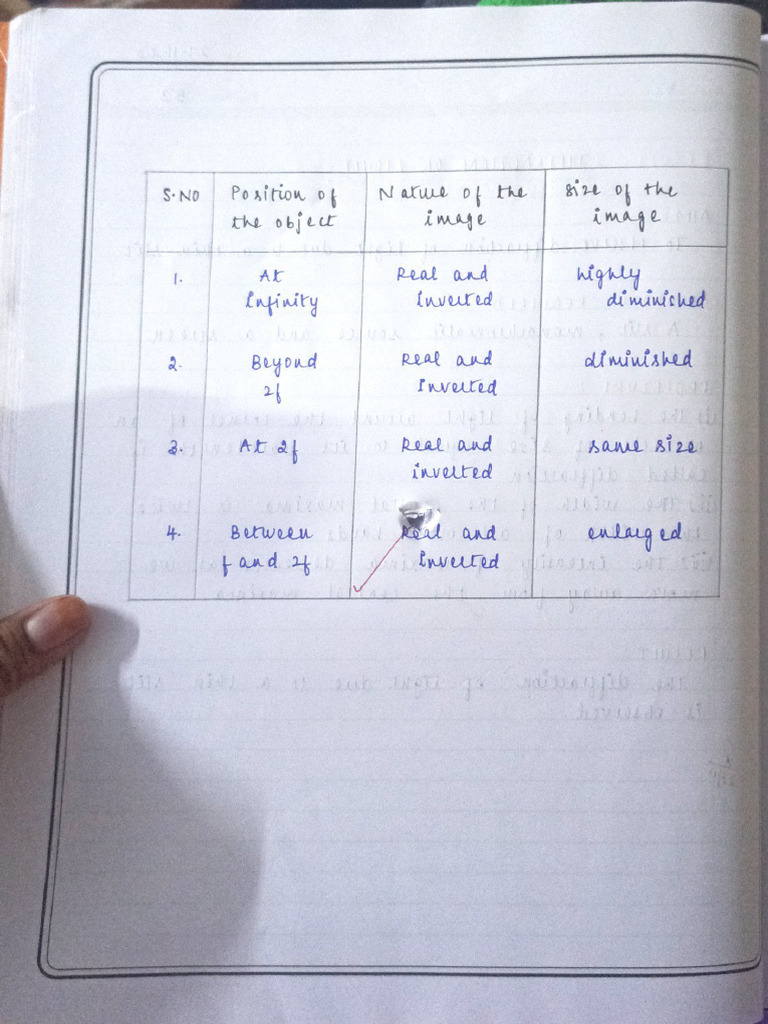 S.NO Position of the object Nature of the image Size of the image
1. At Infinity Real and Inverted highly diminished
2. Beyond 2f Real and Inverted diminished
3. At 2f Real and inverted same size
4. Between f and 2f Real and Inverted enlarged